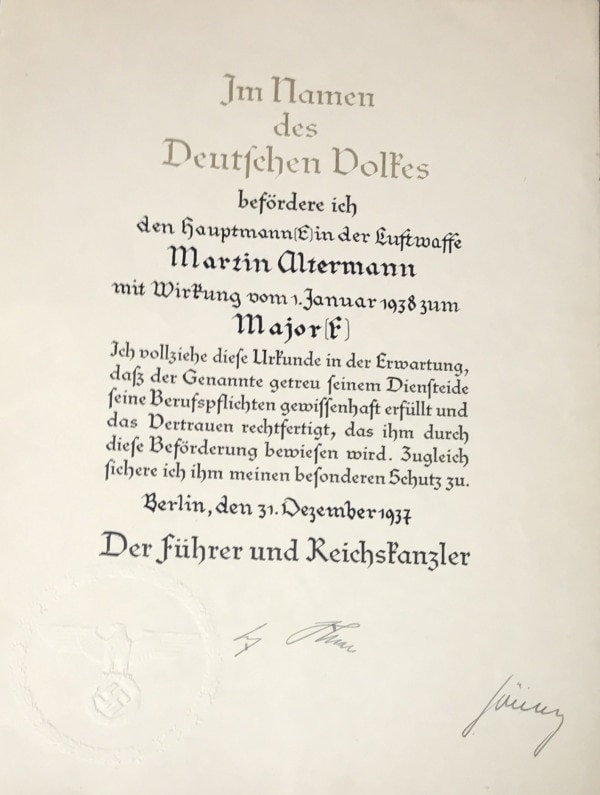 Im Namen
des
Deutschen Volkes
befördere ich
den Hauptmann(E) in der Luftwaffe
Martin Altermann
mit Wirkung vom 1. Januar 1938 zum
Major(E)
Ich vollziehe diese Urkunde in der Erwartung,
daß der Genannte getreu seinem Diensteide
seine Berufspflichten gewissenhaft erfüllt und
das Vertrauen rechtfertigt, das ihm durch
diese Beförderung bewiesen wird. Zugleich
sichere ich ihm meinen besonderen Schutz zu.
Berlin, den 31. Dezember 1937
Der Führer und Reichskanzler